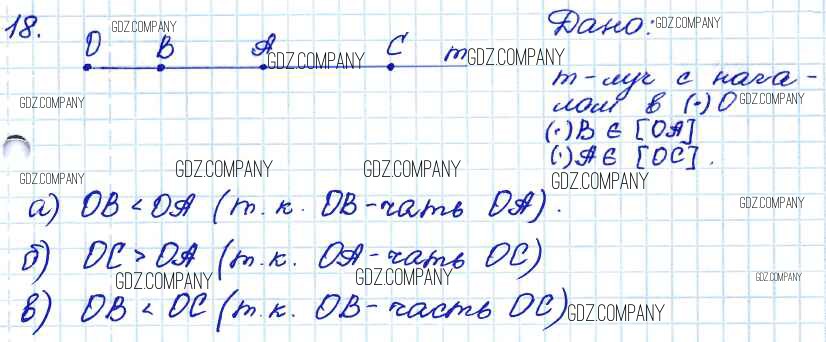 18. GDZ.COMPANY Дано: GDZ.COMPANY
O B A C m
GDZ.COMPANY GDZ.COMPANY
GDZ.COMPANY m-луч с нача-
лом в (·) O GDZ.COMPANY
(·) B ∈ [OA]
(·) A ∈ [OC].
GDZ.COMPANY GDZ.COMPANY GDZ.COMPANY GDZ.COMPANY
а) OB < OA (т.к. OB-чать OA). GDZ.COMPANY
б) OC > OA (т.к. OA-чать OC)
GDZ.COMPANY GDZ.COMPANY GDZ.COMPANY
в) OB < OC (т.к. OB-часть OC) GDZ.COMPANY